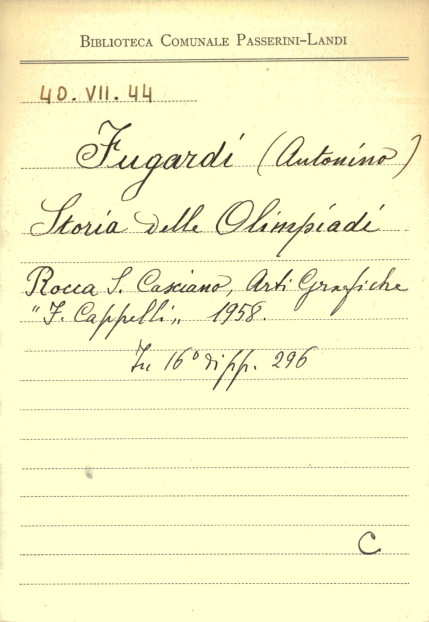 BIBLIOTECA COMUNALE PASSERINI-LANDI
40.VII.44
Fugardi (Antonino)
Storia delle Olimpiadi
Rocca S. Casciano, Arti Grafiche
"F. Cappelli" 1958.
In 16° di pp. 296
C